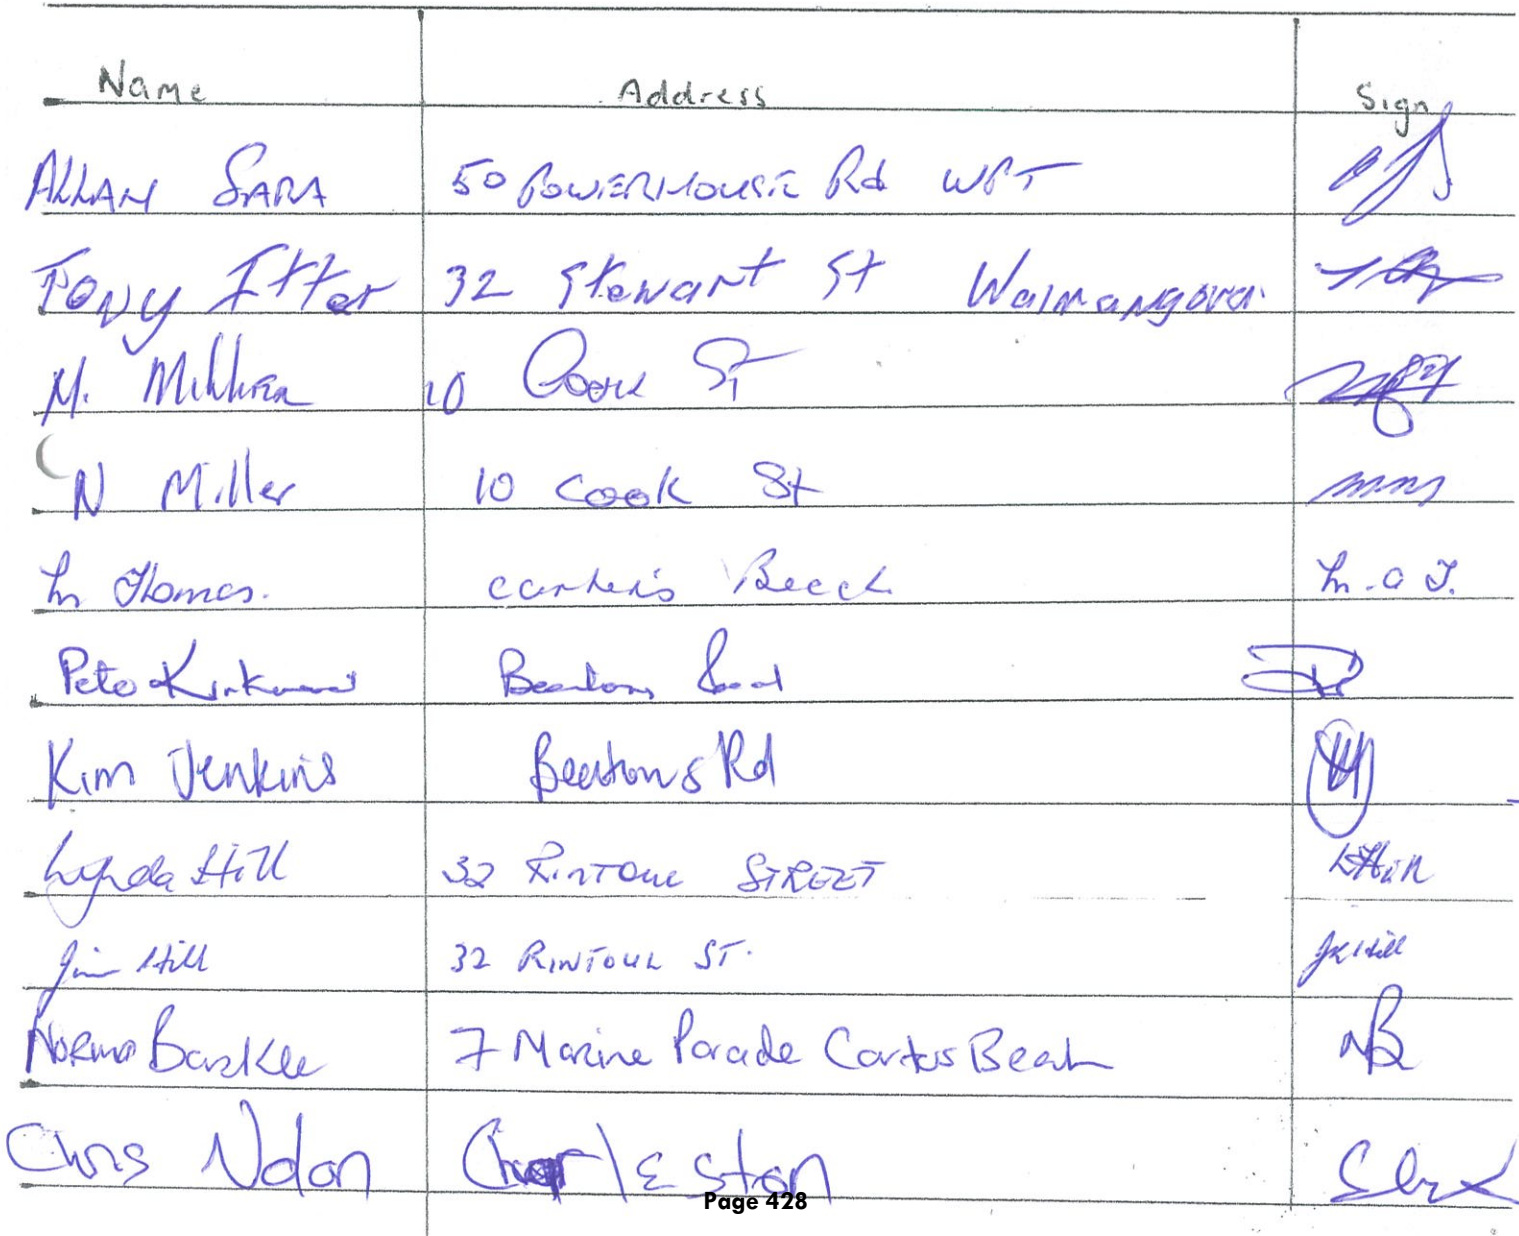 Name Address Sign
ALLAN SARA 50 POWERHOUSE Rd WPT
TONY Itter 32 Stewart St Waimangaroa
M. Millar 10 Cook St
N Miller 10 Cook St mm
L Thomas. carters Beach L.O T.
Pete Kirkwood Beatons Road
Kim Jenkins Beatons Rd
Lynda Hill 32 RINTOUL STREET LHill
Jim Hill 32 RINTOUL ST. JK Hill
NORMA 7 Marine Parade Carters Beach NB
Chris Nolan Charleston
Page 428